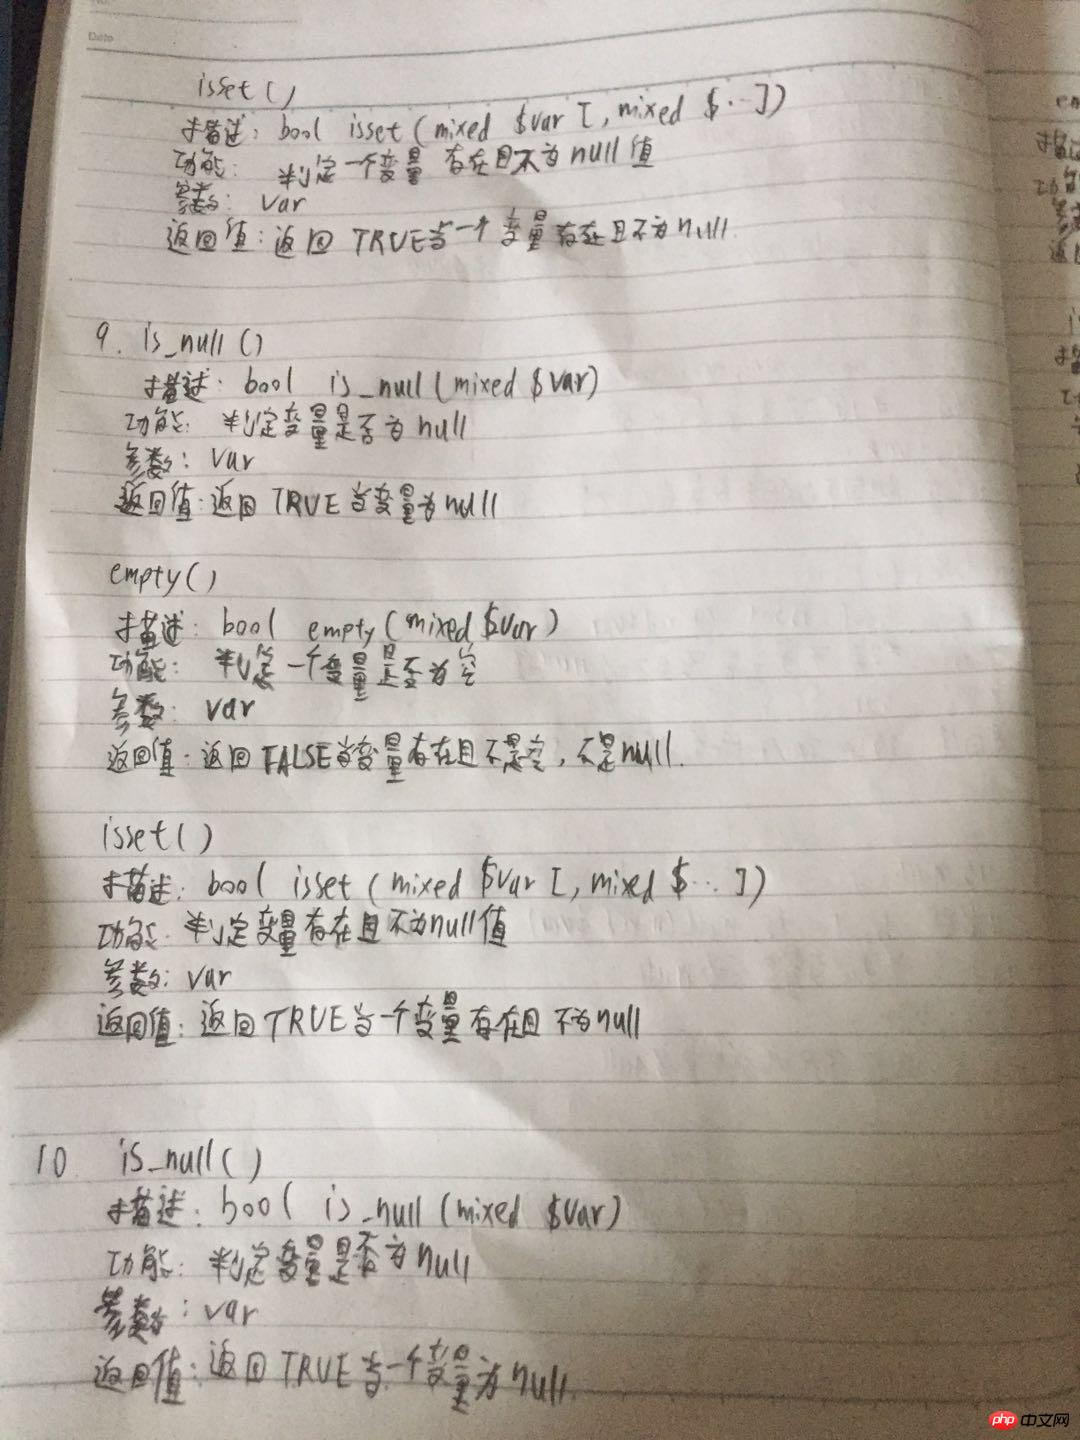 Date
isset()
描述: bool isset(mixed $var [, mixed $...])
功能: 判定一个变量存在且不为null值
参数: var
返回值: 返回 TRUE当一个变量存在且不为null.
9. is_null()
描述: bool is_null(mixed $var)
功能: 判定变量是否为null
参数: var
返回值: 返回 TRUE 当变量为null
empty()
描述: bool empty(mixed $var)
功能: 判定一个变量是否为空
参数: var
返回值: 返回 FALSE当变量存在且不是空, 不是null.
isset()
描述: bool isset(mixed $var [, mixed $...])
功能: 判定变量存在且不为null值
参数: var
返回值: 返回 TRUE 当一个变量存在且不为null
10 is_null()
描述: bool is_null(mixed $var)
功能: 判定变量是否为null
参数: var
返回值: 返回 TRUE 当一个变量为null.
php 中文网